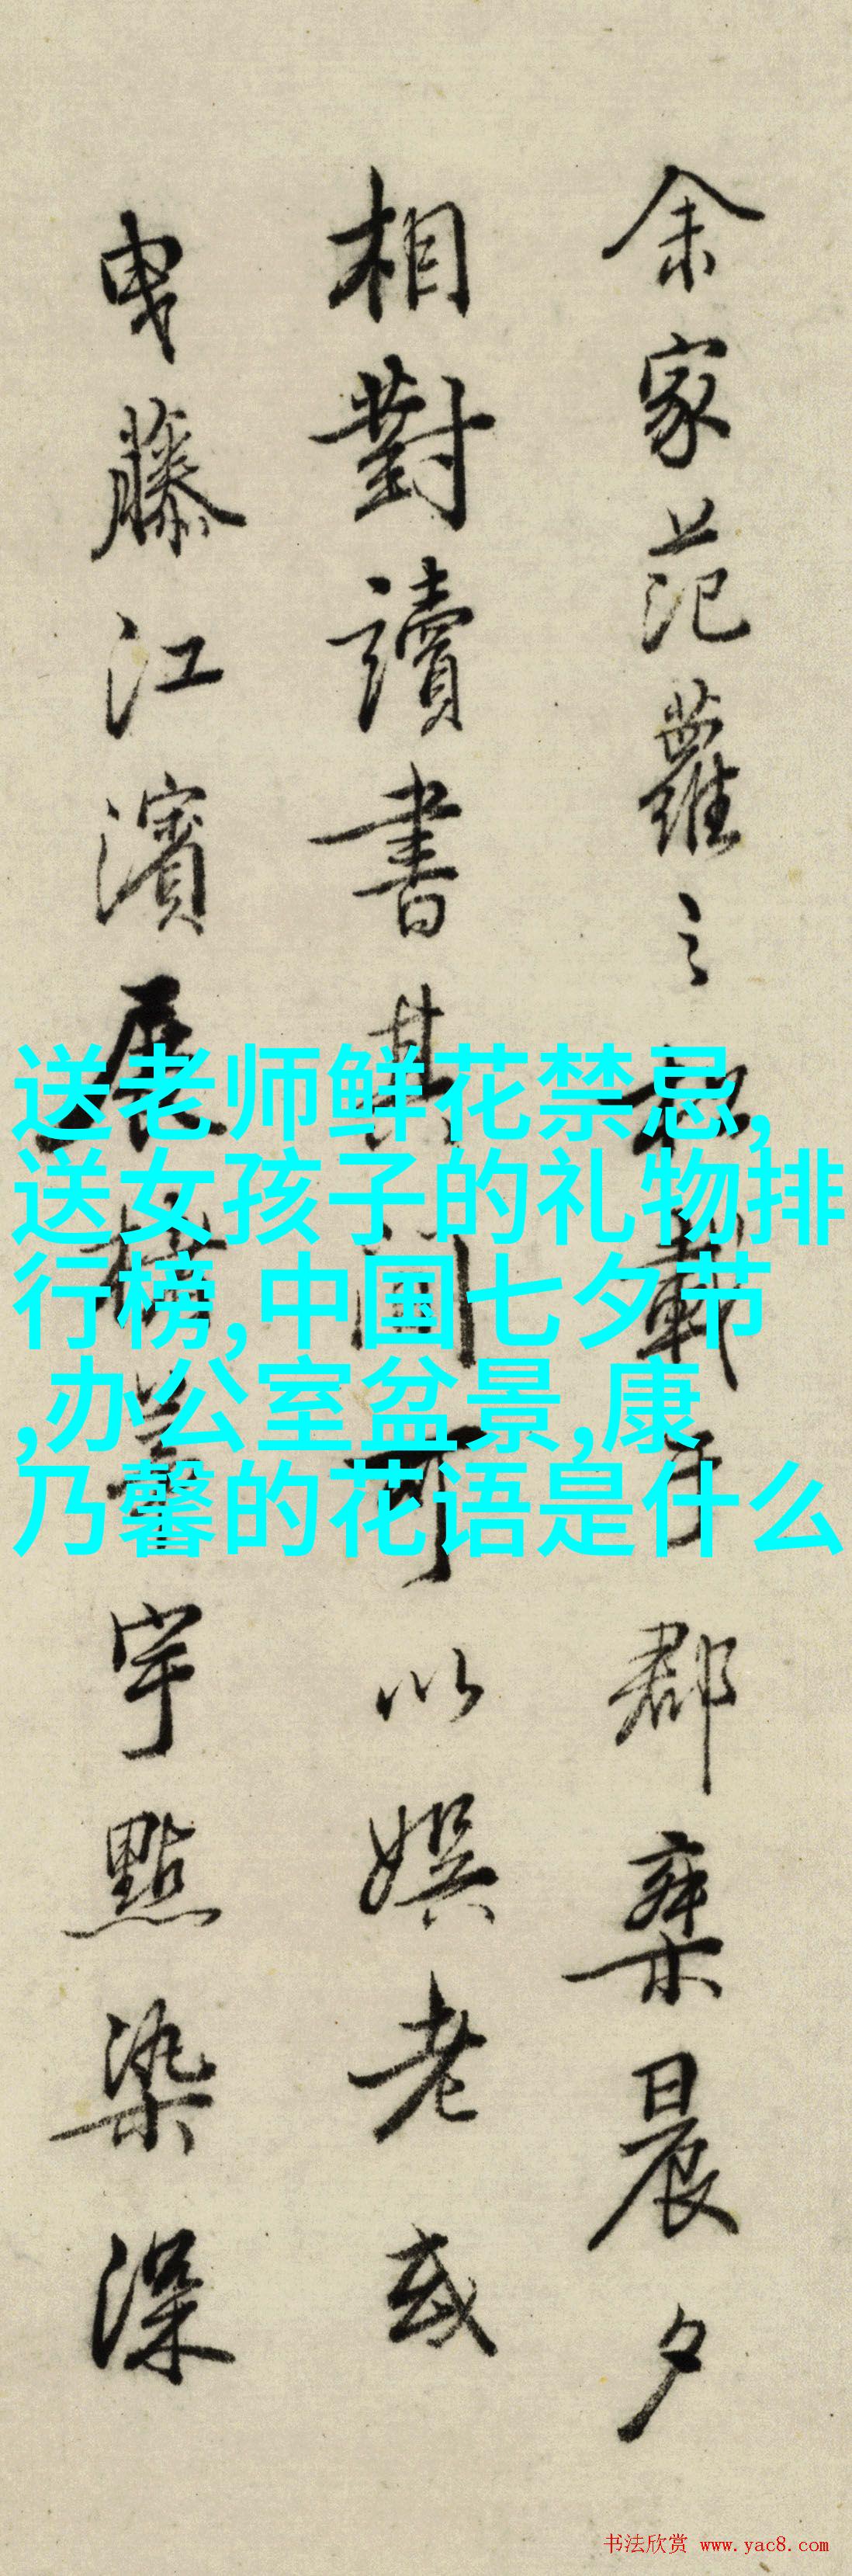 余家范蘿之松載于郡乘晨夕
相對讀書其間可以娯老或
曳藤江濱展
宇點染深
送老师鲜花禁忌,
送女孩子的礼物排
行榜,中国七夕节
,办公室盆景,康
乃馨的花语是什么
书法欣赏 www.yac8.com